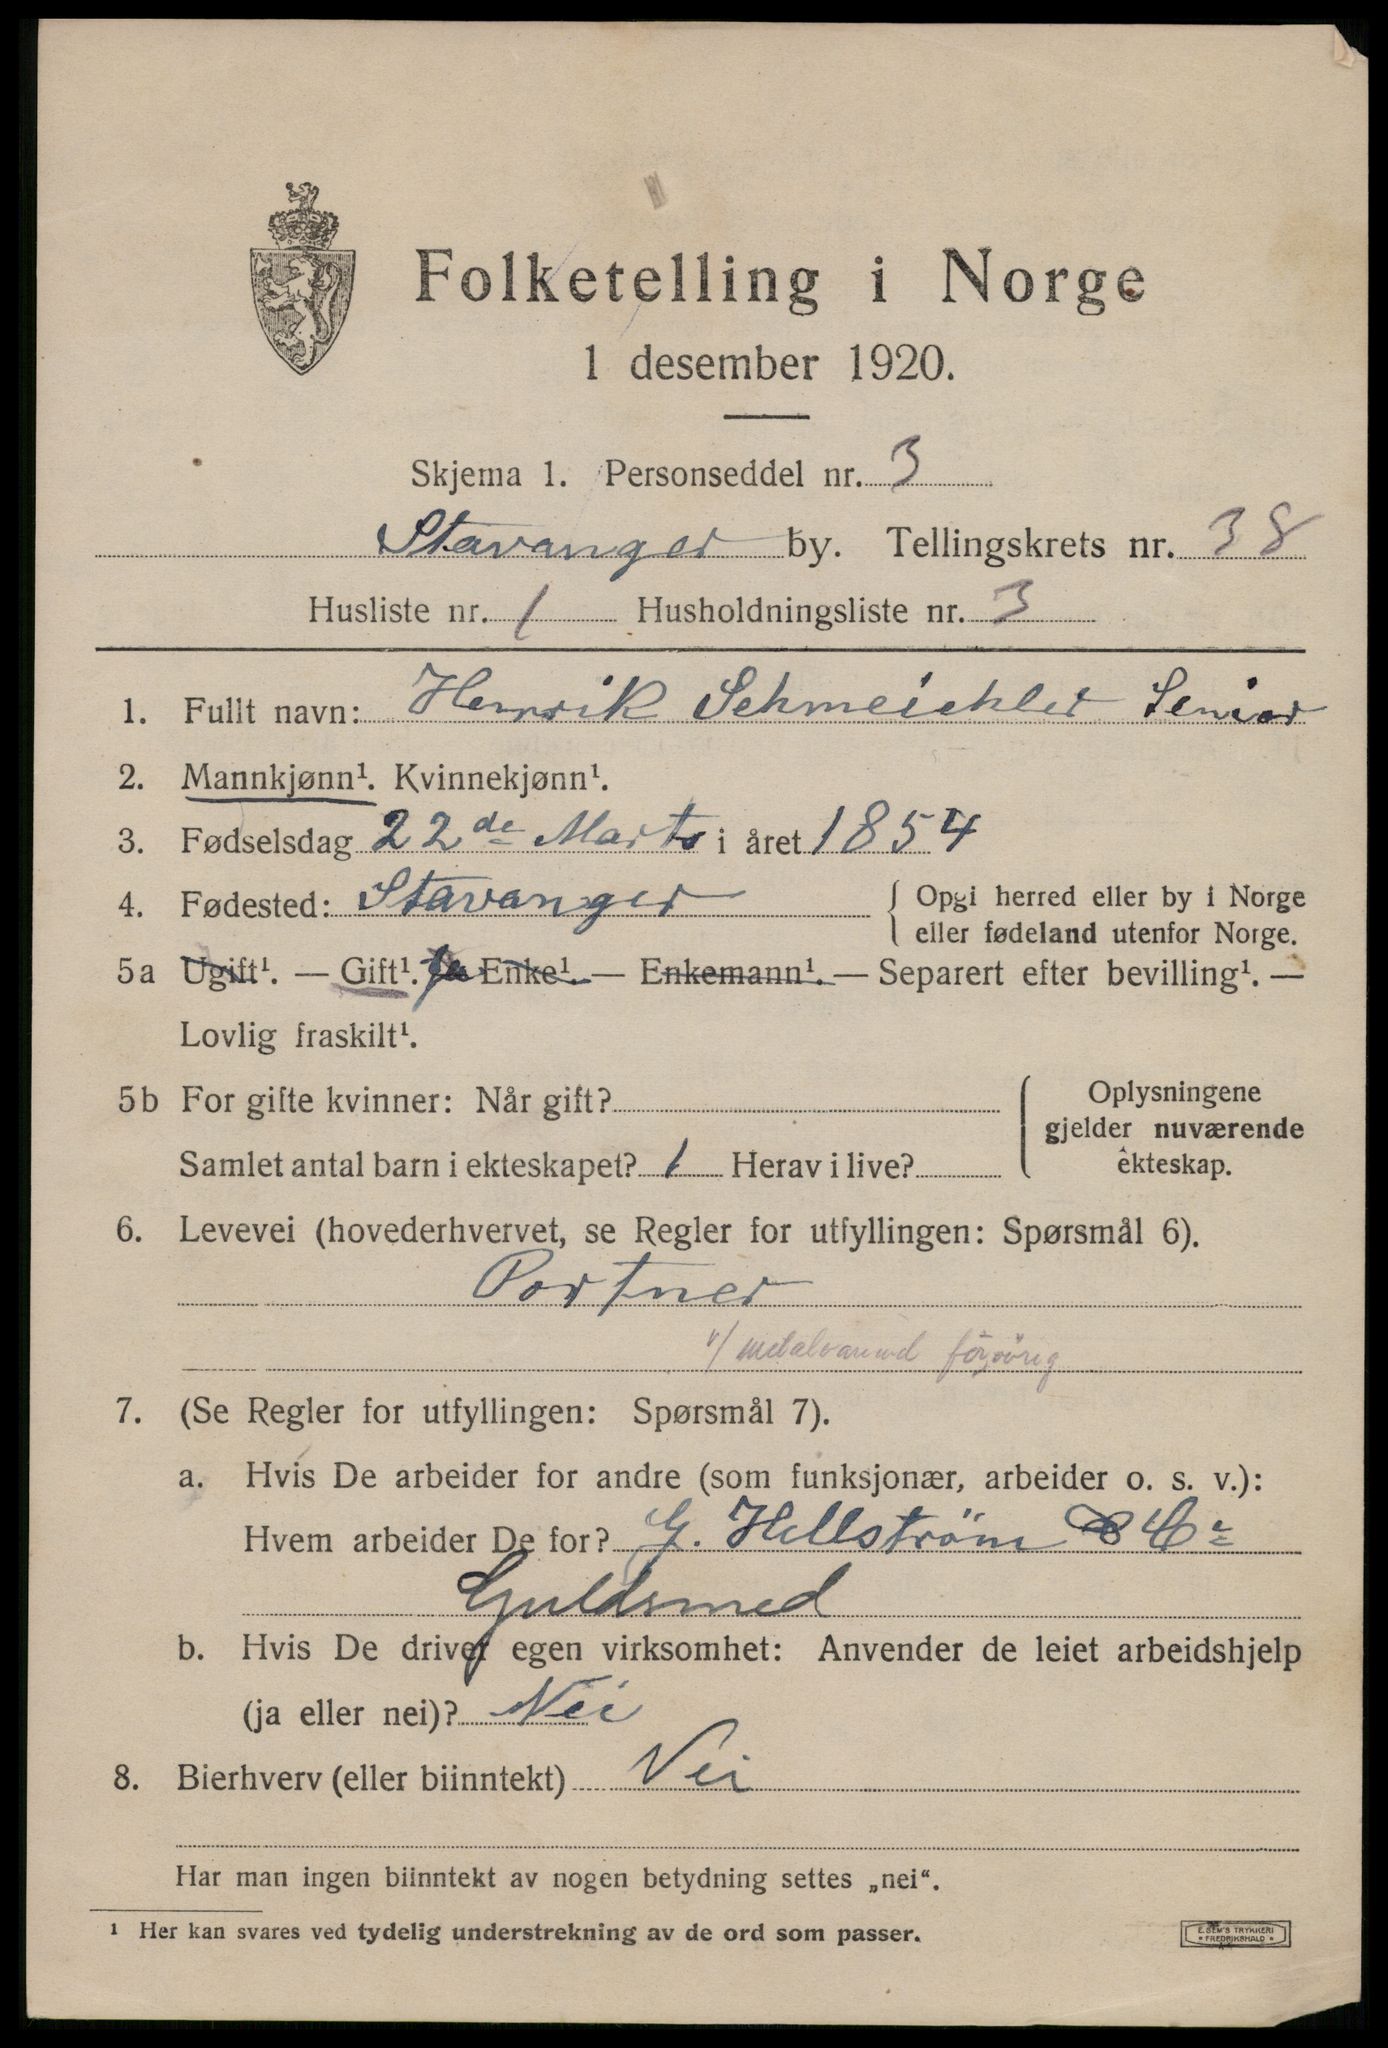 Folketelling i Norge
1 desember 1920.
Skjema 1. Personseddel nr. 3
Stavanger by. Tellingskrets nr. 38
Husliste nr. 1 Husholdningsliste nr. 3
1. Fullt navn: Henrik Schmeichler Senior
2. Mannkjønn¹. Kvinnekjønn¹.
3. Fødselsdag 22de Marts i året 1854
4. Fødested: Stavanger { Opgi herred eller by i Norge
eller fødeland utenfor Norge.
5a Ugift¹. — Gift¹. Ja Enke¹. — Enkemann¹. — Separert efter bevilling¹. —
Lovlig fraskilt¹.
5b For gifte kvinner: Når gift?
Samlet antal barn i ekteskapet? 1 Herav i live?
{ Oplysningene
gjelder nuværende
ekteskap.
6. Levevei (hovederhvervet, se Regler for utfyllingen: Spørsmål 6).
Portner
v/
7. (Se Regler for utfyllingen: Spørsmål 7).
a. Hvis De arbeider for andre (som funksjonær, arbeider o. s. v.):
Hvem arbeider De for? G. Hellstrøm & Co
Guldsmed
b. Hvis De driver egen virksomhet: Anvender de leiet arbeidshjelp
(ja eller nei)? Nei
8. Bierhverv (eller biinntekt) Nei
Har man ingen biinntekt av nogen betydning settes „nei“.
¹ Her kan svares ved tydelig understrekning av de ord som passer.
E. SEM'S TRYKKERI
FREDRIKSHALD